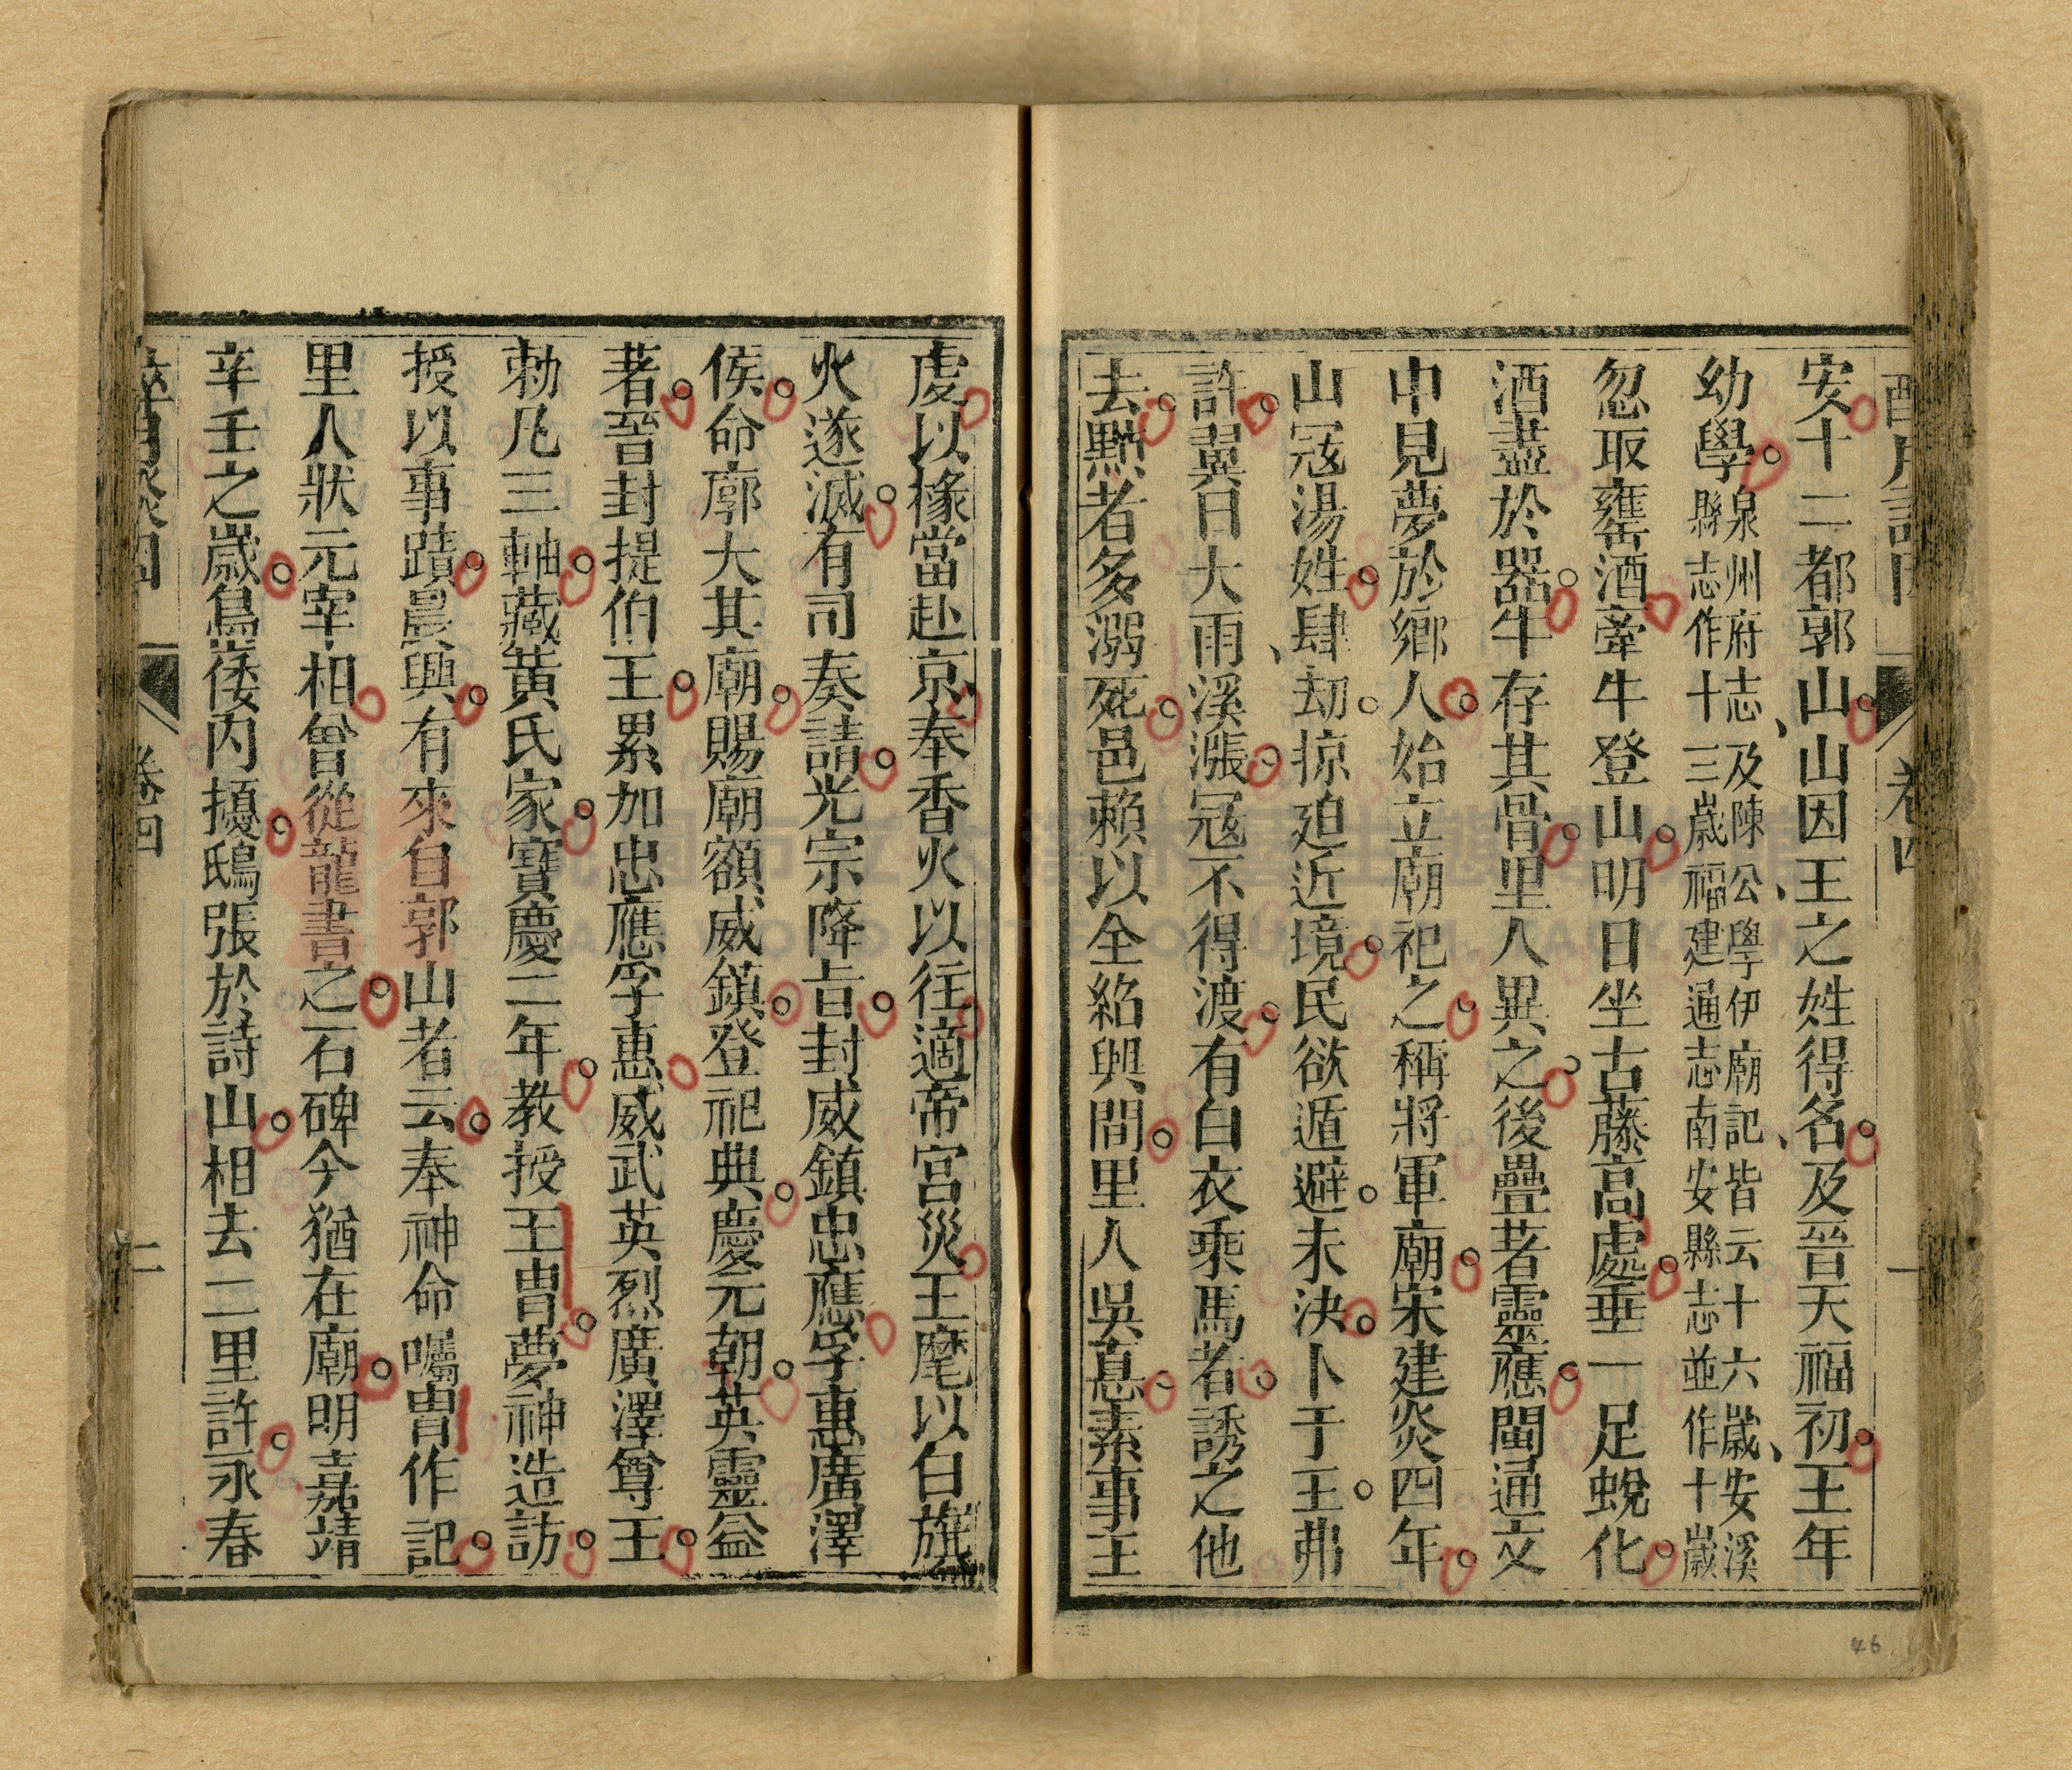 安十二都郭山山因王之姓得名及晉天福初王年
幼學泉州府志及陳公學伊廟記皆云十六歲安溪
縣志作十三歲福建通志南安縣志並作十歲
忽取甕酒牽牛登山明日坐古藤高處垂一足蛻化
酒盡於器牛存其骨里人異之後疊著靈應閩通文
中見夢於鄉人始立廟祀之稱將軍廟宋建炎四年
山寇湯姓肆刧掠廹近境民欲遁避未決卜于王弗
許翼日大雨溪漲寇不得渡有白衣乘馬者誘之他
去黠者多溺死邑賴以全紹興間里人吳惪素事王
虔以掾當赴京奉香火以往適帝宮災王麾以白旗
火遂滅有司奏請光宗降旨封威鎮忠應孚惠廣澤
侯命廓大其廟賜廟額威鎮登祀典慶元朝英靈益
著晉封提伯王累加忠應孚惠威武英烈廣澤尊王
勅凡三軸藏黃氏家寶慶二年教授王冑夢神造訪
授以事蹟晨興有來自郭山者云奉神命囑冑作記
里人狀元宰相曾從龍書之石碑今猶在廟明嘉靖
辛壬之歲島倭內擾鴟張於詩山相去二里許永春
卷四
二